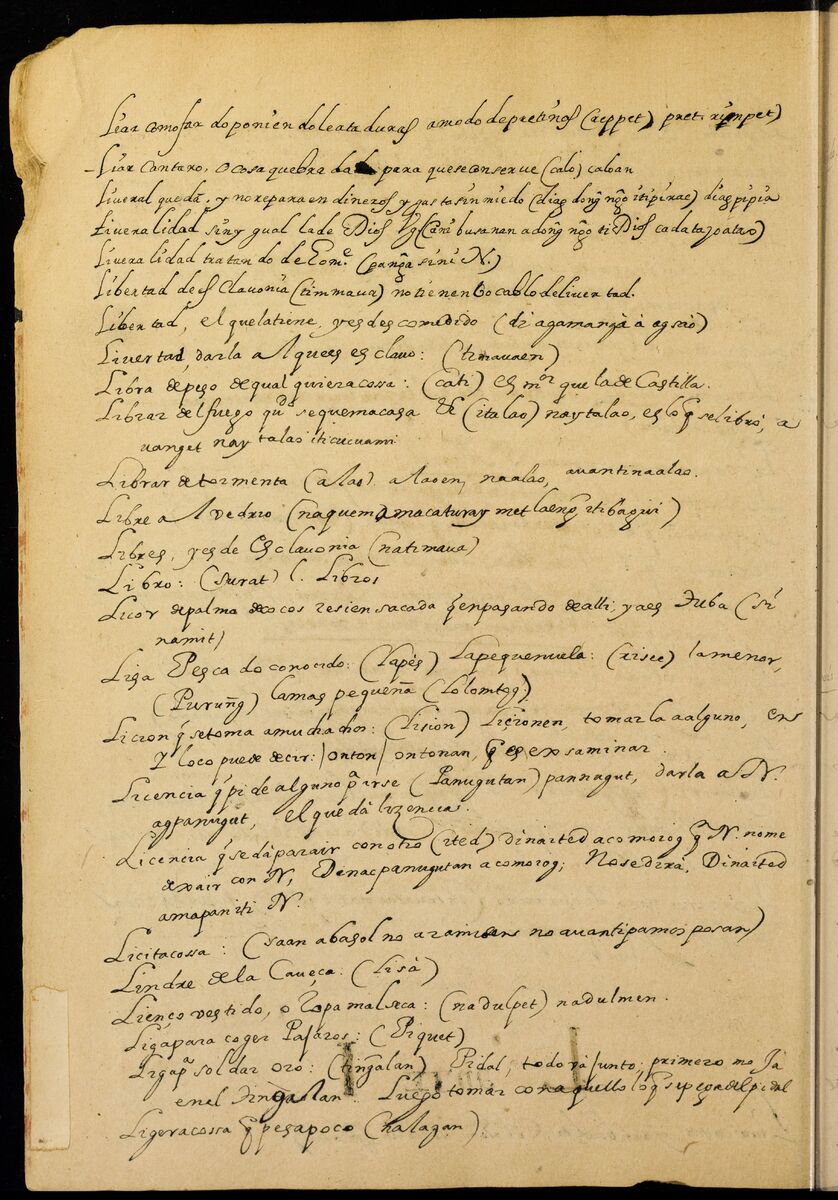 Liar como far do poniendole ataduras a modo de pretinos (reppet) pret. rippet)
Liar Cantaro, o cosa quebrada para que se conserve (calo) caloan
Liveral que dâ, y no repara en dineros y gasta sin miedo
Liveralidad sin ygual la de Dios
Liveralidad tratando de
Libertad de esclavonia (timmaua) no tienen bocablo de livertad.
Libertad, el que la tiene, y es descomedido (di agamangâ à agsao)
Livertad, darla al que es esclavo: (timauaen)
Libra de peso de qual quiera cossa: (cati) es mor que la de Castilla.
Librar del fuego qdo se quema casa (italao) naytalao, es lo q se libró, a
uanget nay talao iti cucuami
Librar de tormenta (alao) alaoen, naalao, auantinaalao.
Libre Alvedrio (naquem a macaturay met laeng iti bagui)
Libres, y es de Esclavonia (natimaua)
Libro: (surat) l. Libros
Licor de palma de cocos resien sacada q en pasando de alli, ya es Tuba (si
namit)
Lisa Pescado conocido: (Lapès) La pequenuela: (risee) la menor,
(Puruñg) la mas pequeña (Lolomtog)
Licion q se toma a muchachos: (Lision) Licionen, tomarla a alguno, en
Yloco puede decir: / onton / ontonan, q es exsaminar.
Licencia q pide alguno pa irse (Panugutan) pannugut, darla a N.
agpanugut, el que dâ lizencia.
Licencia q se dâ para ir con otro (ited) Dinaited acomorog q N. no me
dexa ir con N, Dinacpanugutan acomorog; No se dirà, Dinaited
amapan iti N.
Licita cossa: (saan a basol no aramidens no auan ti pamosposan)
Lindre de la Caueça: (Lisà)
Lienço vestido, o Ropa mal seca: (nadulpet) nadulmen.
Liga para coger Pajaros: (Piquet)
Liga pa soldar oro: (tingalan) Pidal, todo va junto; primero moja
en el tingalan. Luego tomar con aquello lo q se pega del pidal
Ligera cossa q pesa poco (nalagan)